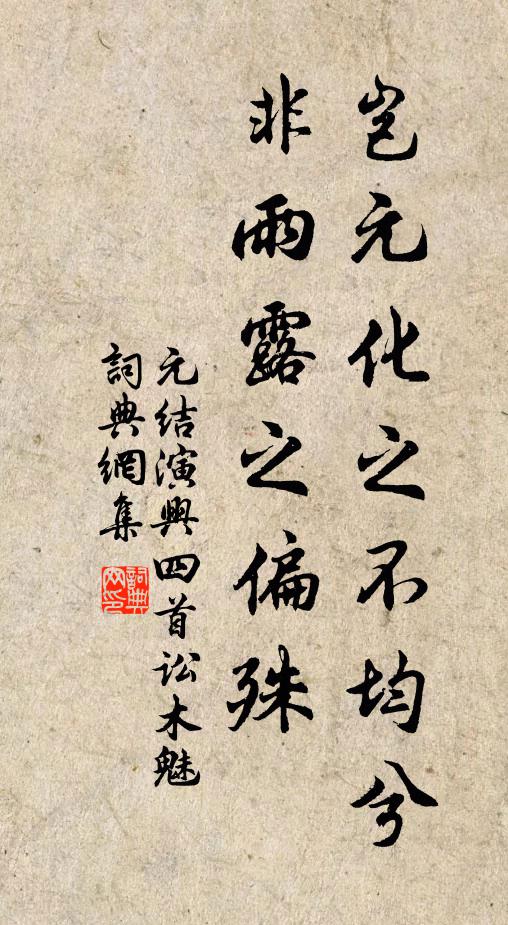 岂元化之不均兮
非雨露之偏殊
元结演興四首讼木魅
詞典網集
詞典網印